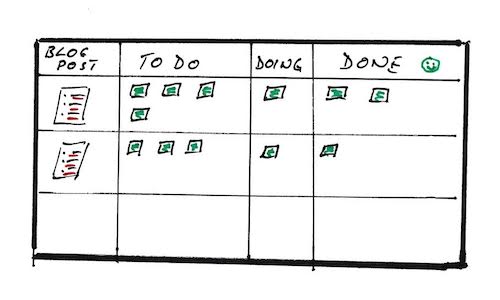 BLOG
POST
TO DO
DOING
DONE